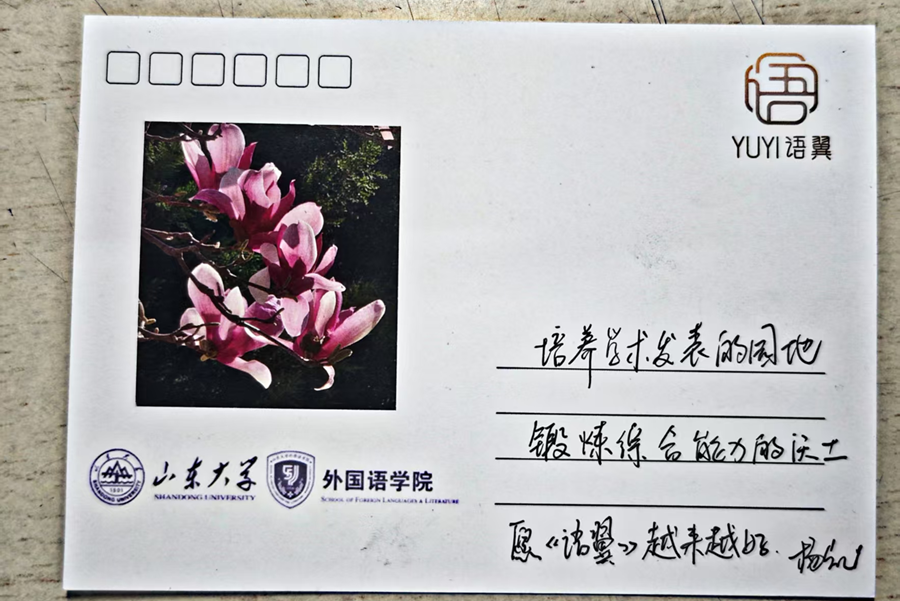 语
YUYI 语翼
培养学术发表的园地
锻炼综合能力的沃土
愿《语翼》越来越好.
山东大学
SHANDONG UNIVERSITY
外国语学院
SCHOOL OF FOREIGN LANGUAGES & LITERATURE
SHANDONG UNIVERSITY
1901